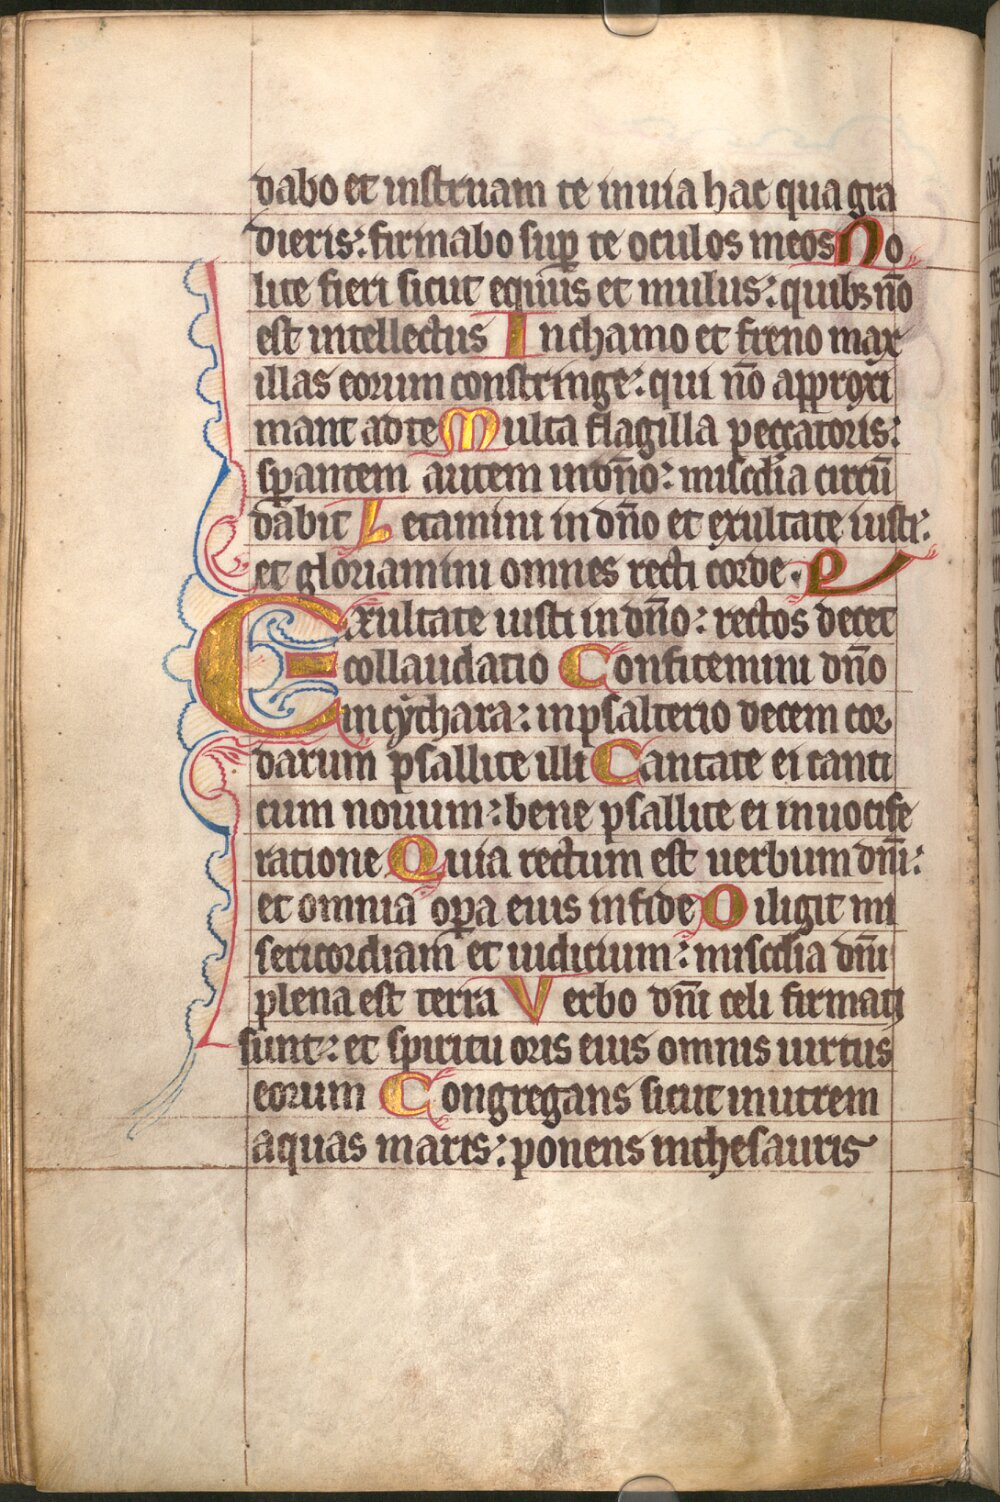 dabo et instruam te in uia hac qua gra
dieris: firmabo sup̲ te oculos meos No
lite fieri sicut equus et mulus: quibꝫ nō
est intellectus In chamo et freno max
illas eorum constringe: qui nō approxi
mant ad te Multa flagilla peccatoris:
sꝑantem autem in dn̄o: misc̄dia circū
dabit Letamini in dn̄o et exultate iusti:
et gloriamini omnes recti corde. P
Exultate iusti in dn̄o: rectos decet
collaudatio Confitemini dn̄o
in cythara: in psalterio decem cor
darum psallite illi Cantate ei canti
cum nouum: bene psallite ei in uocife
ratione Quia rectum est uerbum dn̄i:
et omnia oꝑa eius in fide Diligit mi
sericordiam et iudicium: misc̄dia dn̄i
plena est terra Verbo dn̄i celi firmati
sunt: et spiritu oris eius omnis uirtus
eorum Congregans sicut in utrem
aquas maris: ponens in thesauris